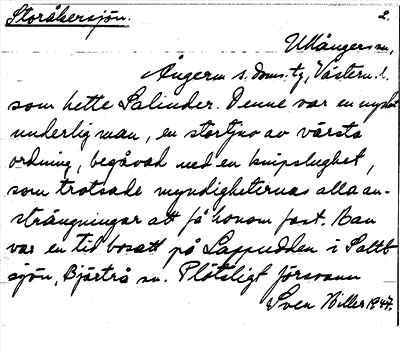 Storåkersjön. 2.
Ullångers sn,
Ångerm. s. doms. tg, Västern. l.
som hette Salinder. Denne var en mycket
underlig man, en stortjuv av värsta
ordning, begåvad med en knipslughet,
som trotsade myndigheternas alla an-
strängningar att få honom fast. Han
var en tid bosatt på Lappudden i Saltb
sjön, Bjärtrå sn. Plötsligt försvann
Sven Biller 1947.